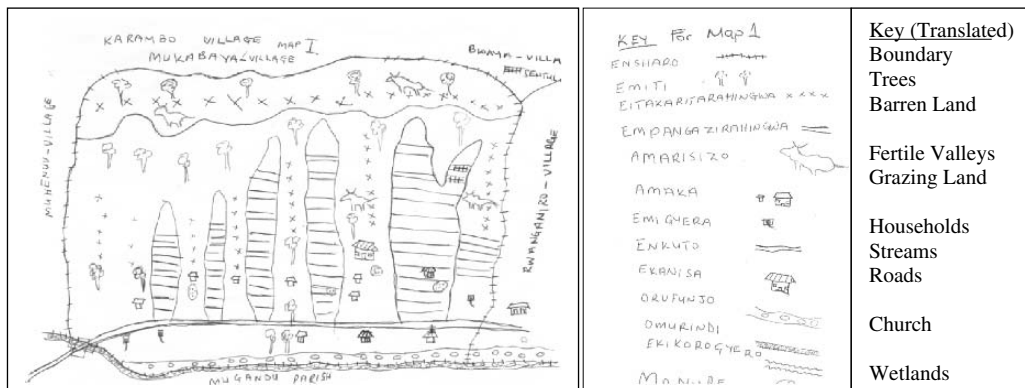 KARAMBO VILLAGE MAP I
MUKABAYA-VILLAGE
MUHENVU-VILLAGE
RWANGANIRO-VILLAGE
MUGANDU PARISH
KEY For Map 1
ENSHARO
EMITI
EITAKARITARAHINGWA x x x x
EMPANGAZIRAHINGWA
AMARISIZO
AMAKA
EMIGYERA
ENKUTO
EKANISA
ORUFUNJO
OMURINDI
EKIKOROGYERO
Key (Translated)
Boundary
Trees
Barren Land
Fertile Valleys
Grazing Land
Households
Streams
Roads
Church
Wetlands